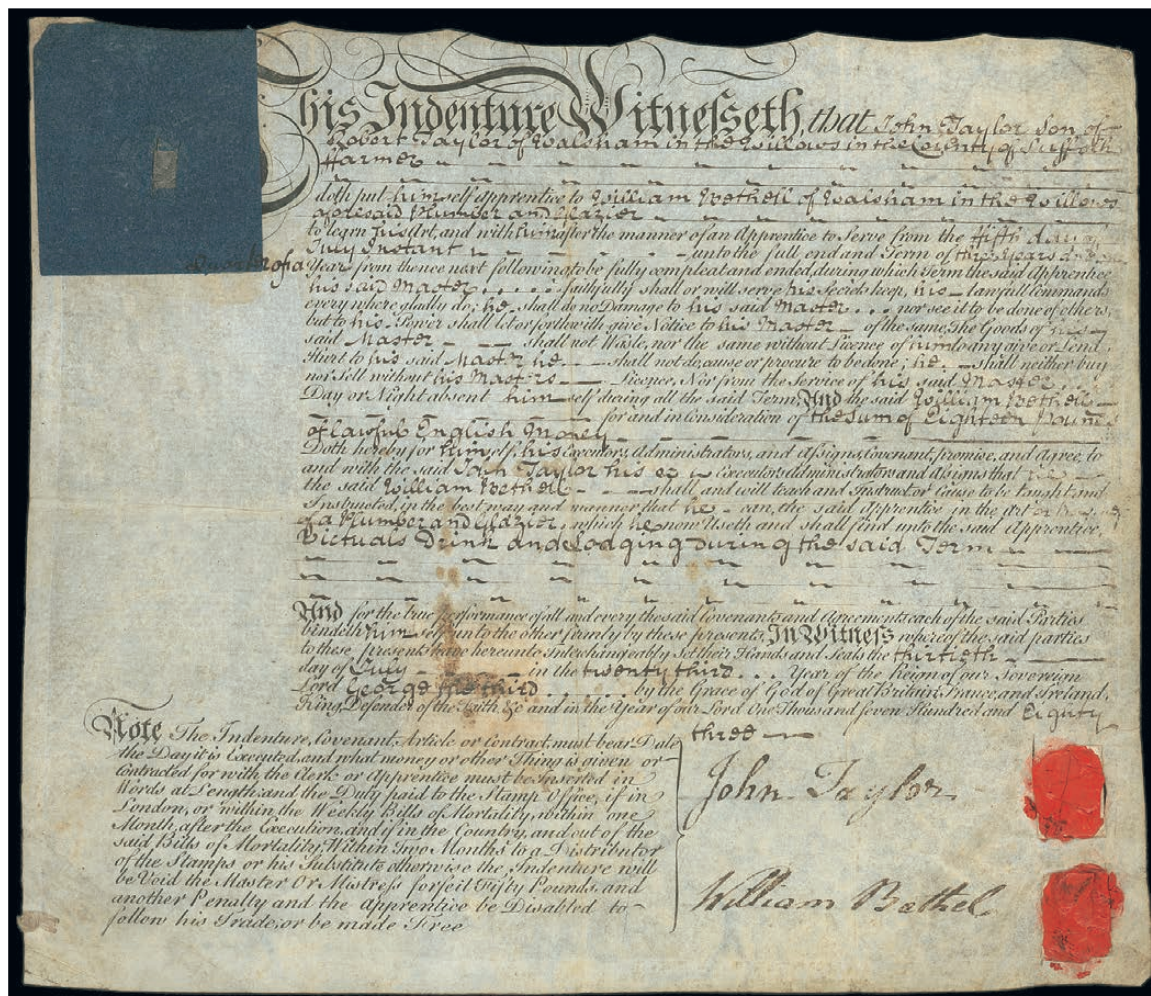 This Indenture Witneſseth, that John Taylor Son of
Robert Taylor of Walsham in the Willows in the County of Suffolk
Farmer
doth put himself Apprentice to William Bethell of Walsham in the Willows
aforesaid Plumber and Glazier
to learn his Art, and with him after the manner of an Apprentice to Serve from the fifth day of
July Instant unto the full end and Term of three Years and one
Quarter of a Year from thence next following to be fully compleat and ended, during which Term the said Apprentice
his said Master faithfully shall or will serve his Secrets keep, his lawfull Commands
every where gladly do; he shall do no Damage to his said Master nor see it to be done of others,
but to his Power shall let or forthwith give Notice to his Master of the same, The Goods of his
said Master shall not Waste, nor the same without Licence of him to any give or Lend
Hurt to his said Master he shall not do, cause or procure to be done; he shall neither buy
nor Sell without his Masters Licence, Nor from the Service of his said Master
Day or Night absent himself during all the said Term, And the said William Bethell
for and in Consideration of the Sum of Eighteen Pounds
of lawful English Money
Doth hereby for himself, his Executors, Administrators, and Aſsigns, Covenant, promise, and Agree, to
and with the said John Taylor his Executors Administrators and Aſsigns that he
the said William Bethell shall and will teach and Instruct or Cause to be taught and
Instructed, in the best way and manner that he can, the said Apprentice in the Art
of a Plumber and Glazier, which he now Useth and shall find unto the said Apprentice,
Victuals Drink and Lodging During the said Term
And for the true performance of all and every the said Covenants and Agreements each of the said Parties
bindeth himself unto the other firmly by these presents, In Witneſs whereof the said parties
to these presents have hereunto Interchangeably Set their Hands and Seals the thirtieth
day of July in the twenty third Year of the Reign of our Sovereign
Lord George the third by the Grace of God of Great Britain, France, and Ireland,
King, Defender of the Faith &c and in the Year of our Lord One Thousand seven Hundred and Eighty
three
Note The Indenture, Covenant, Article or Contract, must bear Date
the Day it is Executed, and what money or other Thing is given or
Contracted for with the Clerk or Apprentice must be Inserted in
Words at Length, and the Duty paid to the Stamp Office, if in
London, or within the Weekly Bills of Mortality, within one
Month, after the Execution, and if in the Country, and out of the
said Bills of Mortality, Within Two Months to a Distributor
of the Stamps or his Substitute otherwise the Indenture will
be Void the Master Or Mistreſs forfeit Fifty Pounds, and
another Penalty and the Apprentice be Disabled to
follow his Trade, or be made Free
John Taylor
William Bethel